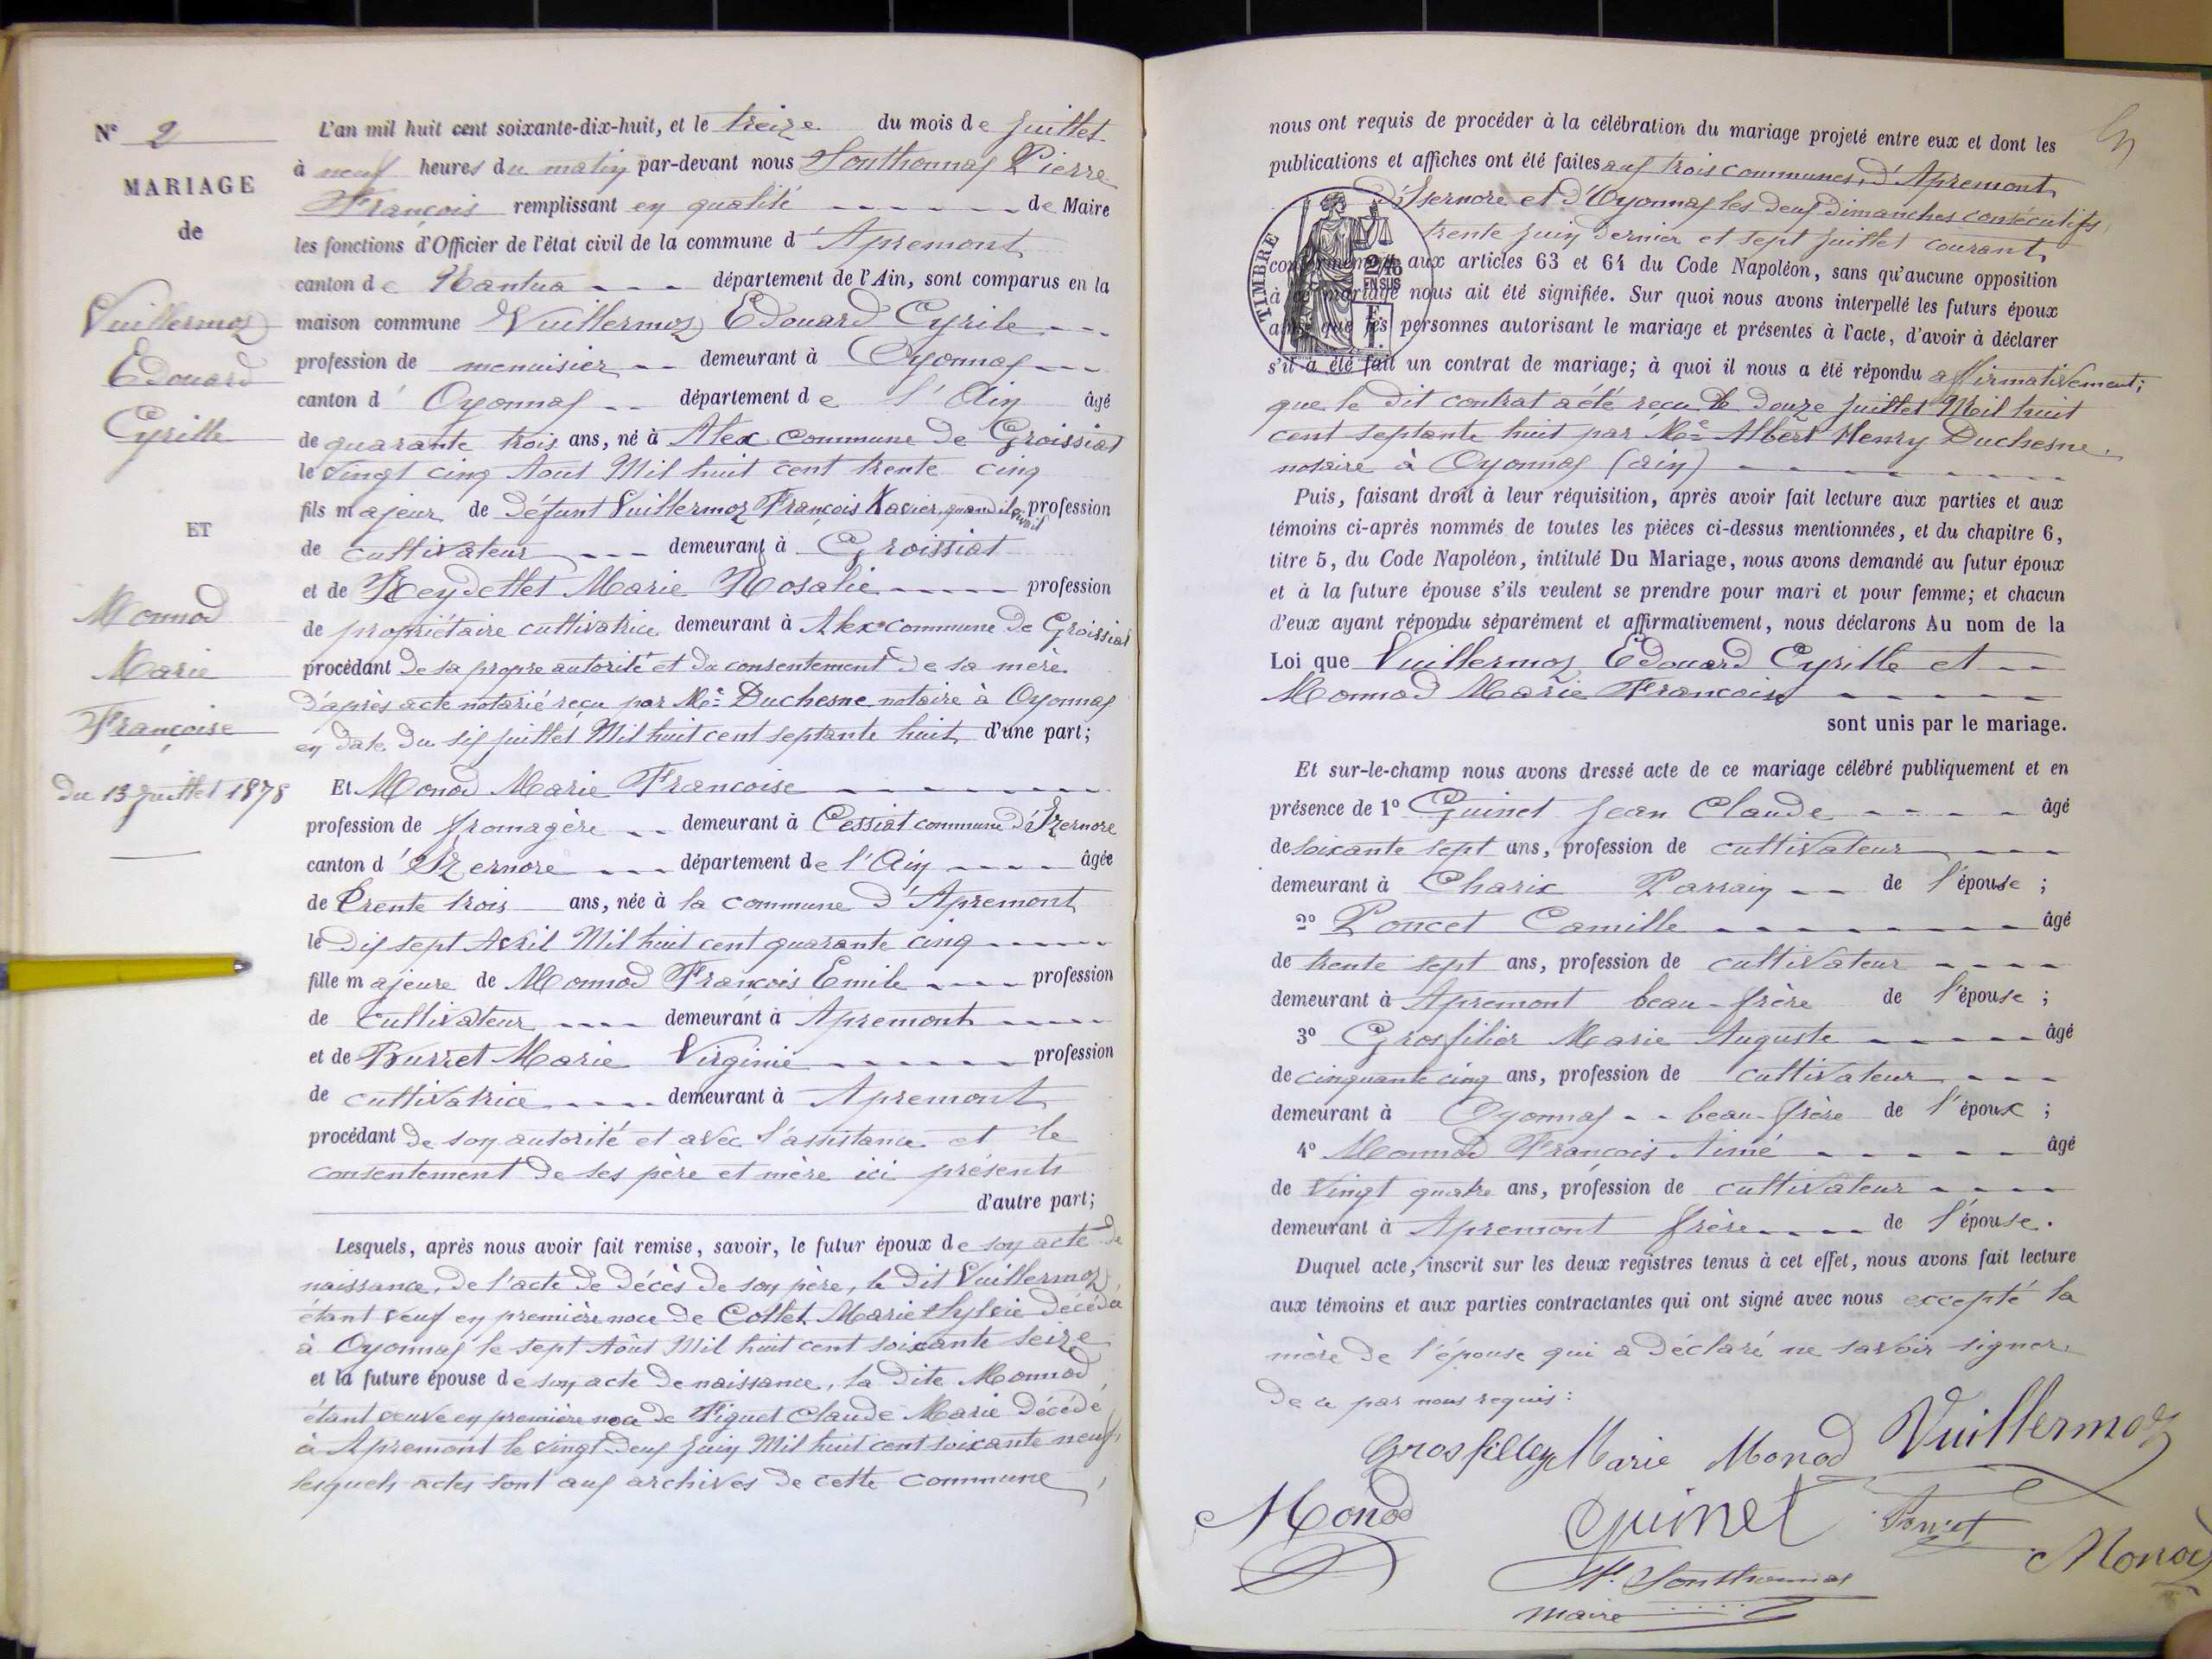 N° 2
MARIAGE
de
Vuillermoz
Edouard
Cyrille
ET
Monnod
Marie
Françoise
du 13 Juillet 1878
L'an mil huit cent soixante-dix-huit, et le treize du mois de Juillet
à neuf heures du matin par-devant nous Sonthonnax Pierre
François remplissant en qualité de Maire
les fonctions d'Officier de l'état civil de la commune d'Apremont
canton de Nantua département de l'Ain, sont comparus en la
maison commune Vuillermoz Edouard Cyrile
profession de menuisier demeurant à Oyonnax
canton d'Oyonnax département de l'Ain âgé
de quarante trois ans, né à Alex commune de Groissiat
le vingt cinq Août Mil huit cent trente cinq
fils majeur de défunt Vuillermoz François Xavier, quand il vivait profession
de cultivateur demeurant à Groissiat
et de Reydellet Marie Rosalie profession
de propriétaire cultivatrice demeurant à Alex commune de Groissiat
procédant de sa propre autorité et du consentement de sa mère
d'après acte notarié reçu par Me Duchesne notaire à Oyonnax
en date du six juillet Mil huit cent septante huit d'une part;
Et Monod Marie Francoise
profession de fromagère demeurant à Cessiat commune d'Izernore
canton d'Izernore département de l'Ain âgée
de trente trois ans, née à la commune d'Apremont
le dix sept Avril Mil huit cent quarante cinq
fille majeure de Monnod François Emile profession
de cultivateur demeurant à Apremont
et de Burret Marie Virginie profession
de cultivatrice demeurant à Apremont
procédant de son autorité et avec l'assistance et le
consentement de ses père et mère ici présents
d'autre part;
Lesquels, après nous avoir fait remise, savoir, le futur époux de son acte de
naissance, de l'acte de décès de son père, le dit Vuillermoz
étant veuf en première noce de Collet Marie Sylvie décédée
à Oyonnax le sept Août Mil huit cent soixante seize
et la future épouse de son acte de naissance, la dite Monnod
étant veuve en première noce de Figuet Claude Marie décédé
à Apremont le vingt deux juin Mil huit cent soixante neuf,
lesquels actes sont aux archives de cette commune,
nous ont requis de procéder à la célébration du mariage projeté entre eux et dont les
publications et affiches ont été faites aux trois communes, d'Apremont
d'Isernore et d'Oyonnax les deux dimanches consécutifs,
trente juin dernier et sept juillet courant,
TIMBRE
2/10
EN SUS
conformément aux articles 63 et 64 du Code Napoléon, sans qu'aucune opposition
à ce mariage nous ait été signifiée. Sur quoi nous avons interpellé les futurs époux
ainsi que les personnes autorisant le mariage et présentes à l'acte, d'avoir à déclarer
s'il a été fait un contrat de mariage; à quoi il nous a été répondu affirmativement;
que le dit contrat a été reçu le douze juillet Mil huit
cent septante huit par Me Albert Henry Duchesne
notaire à Oyonnax (ain)
Puis, faisant droit à leur réquisition, après avoir fait lecture aux parties et aux
témoins ci-après nommés de toutes les pièces ci-dessus mentionnées, et du chapitre 6,
titre 5, du Code Napoléon, intitulé Du Mariage, nous avons demandé au futur époux
et à la future épouse s'ils veulent se prendre pour mari et pour femme; et chacun
d'eux ayant répondu séparément et affirmativement, nous déclarons Au nom de la
Loi que Vuillermoz Edouard Cyrille et
Monnod Marie Francoise
sont unis par le mariage.
Et sur-le-champ nous avons dressé acte de ce mariage célébré publiquement et en
présence de 1° Guinet Jean Claude âgé
de soixante sept ans, profession de cultivateur
demeurant à Charix Parrain de l'épouse;
2° Poncet Camille âgé
de trente sept ans, profession de cultivateur
demeurant à Apremont beau-frère de l'épouse;
3° Grosfilier Marie Auguste âgé
de cinquante cinq ans, profession de cultivateur
demeurant à Oyonnax beau-frère de l'époux;
4° Monnod François Aimé âgé
de vingt quatre ans, profession de cultivateur
demeurant à Apremont frère de l'épouse.
Duquel acte, inscrit sur les deux registres tenus à cet effet, nous avons fait lecture
aux témoins et aux parties contractantes qui ont signé avec nous excepté la
mère de l'épouse qui a déclaré ne savoir signer
de ce par nous requis:
Grosfilley Marie Monod Vuillermoz
Monod Guinet Poncet Monod
Sonthonnax
maire